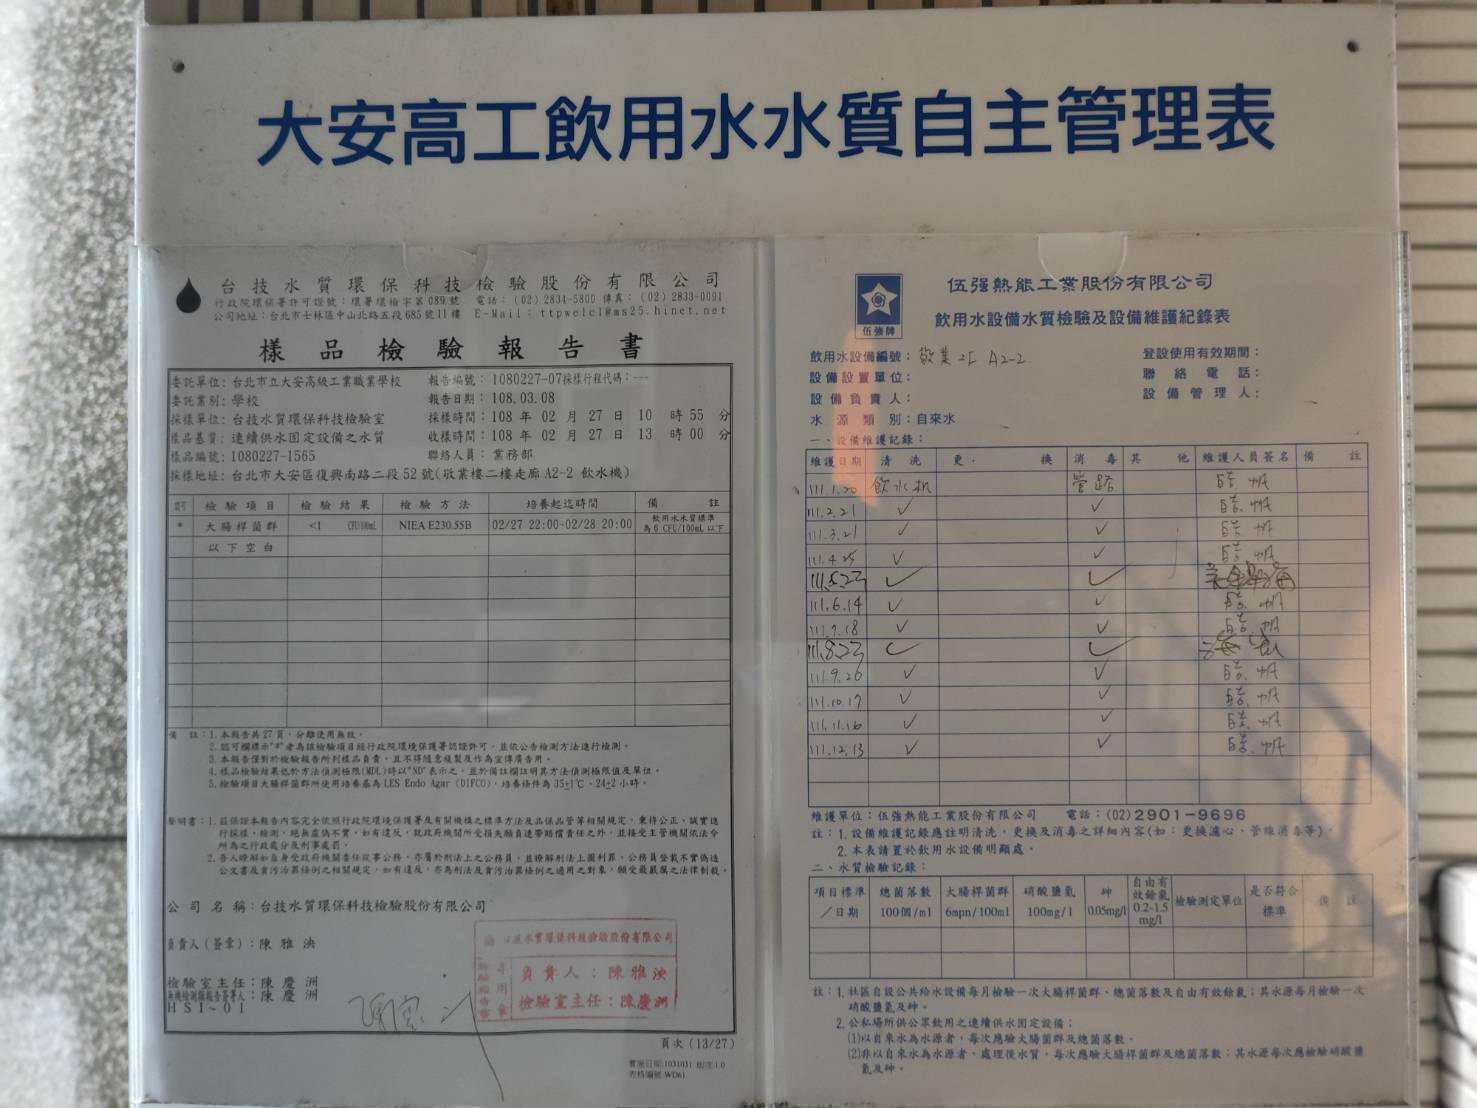 大安高工飲用水水質自主管理表
台技水質環保科技檢驗股份有限公司
行政院環保署許可證號：環署環檢字第089號 電話：(02) 2834-5800 傳真：(02) 2833-0091
公司地址：台北市士林區中山北路五段685號11樓 E-Mail：ttpwelcl@ms25.hinet.net
樣品檢驗報告書
委託單位：台北市立大安高級工業職業學校 報告編號：1080227-07採樣行程代碼：---
委託業別：學校 報告日期：108.03.08
採樣單位：台技水質環保科技檢驗室 採樣時間：108 年 02 月 27 日 10 時 55 分
樣品基質：連續供水固定設備之水質 收樣時間：108 年 02 月 27 日 13 時 00 分
樣品編號：1080227-1565 聯絡人員：業務部
採樣地址：台北市大安區復興南路二段52號(敬業樓二樓走廊 A2-2 飲水機)
檢驗項目 檢驗結果 檢驗方法 培養起迄時間 備註
* 大腸桿菌群 <1 CFU/100mL NIEA E230.55B 02/27 22:00-02/28 20:00 飲用水水質標準
為6 CFU/100mL 以下
以下空白
備註：1. 本報告共27頁，分離使用無效。
2. 認可欄標示"*"者為該檢驗項目經行政院環境保護署認證許可，並依公告檢測方法進行檢測。
3. 本報告僅對於檢驗報告所列樣品負責，且不得隨意複製及作為宣傳廣告用。
4. 樣品檢驗結果低於方法偵測極限(MDL)時以"ND"表示之，並於備註欄註明其方法偵測極限值及單位。
5. 檢驗項目大腸桿菌群所使用培養基為 LES Endo Agar (DIFCO)，培養條件為 35±1℃、24±2 小時。
聲明書：1. 茲保證本報告內容完全依照行政院環境保護署及有關機構之標準方法及品保品管等相關規定，秉持公正、誠實進
行採樣、檢測，絕無虛偽不實，如有違反，就政府機關所受損失願負連帶賠償責任之外，並接受主管機關依法令
所為之行政處分及刑事處罰。
2. 吾人瞭解如自身受政府機關委任從事公務，亦屬於刑法上之公務員，並瞭解刑法上圖利罪、公務員登載不實偽造
公文書及貪污治罪條例之相關規定，如有違反，亦為刑法及貪污治罪條例之適用之對象，願受最嚴厲之法律制裁。
公司名稱：台技水質環保科技檢驗股份有限公司
負責人(簽章)：陳雅泱
檢驗室主任：陳慶洲
無機檢測類報告簽署人：陳慶洲
HSI-01
台技水質環保科技檢驗股份有限公司
負責人：陳雅泱
檢驗室主任：陳慶洲
頁次 (13/27)
實施日期:1031031 版次:1.0
表格編號:WD61
伍強牌
伍强熱能工業股份有限公司
飲用水設備水質檢驗及設備維護紀錄表
飲用水設備編號：敬業2F A2-2 登設使用有效期間：
設備設置單位： 聯絡電話：
設備負責人： 設備管理人：
水源類別：自來水
一、設備維護記錄：
維護日期 清洗 更．換 消毒 其他 維護人員簽名 備註
111.1.20 飲水机 管路
111.2.21 ✓ ✓
111.3.21 ✓ ✓
111.4.25 ✓ ✓
111.5.23 ✓ ✓
111.6.14 ✓ ✓
111.7.18 ✓ ✓
111.8.23 ✓ ✓
111.9.26 ✓ ✓
111.10.17 ✓ ✓
111.11.16 ✓ ✓
111.12.13 ✓ ✓
維護單位：伍強熱能工業股份有限公司 電話：(02)2901-9696
註：1. 設備維護記錄應註明清洗、更換及消毒之詳細內容(如：更換濾心、管線消毒等)。
2. 本表請置於飲用水設備明顯處。
二、水質檢驗記錄：
項目標準／日期 總菌落數 100個/ml 大腸桿菌群 6mpn/100ml 硝酸鹽氮 100mg/l 砷 0.05mg/l 自由有效餘氯 0.2-1.5 mg/l 檢驗測定單位 是否符合標準 備註
註：1. 社區自設公共給水設備每月檢驗一次大腸桿菌群、總菌落數及自由有效餘氯；其水源每月檢驗一次
硝酸鹽氮及砷。
2. 公私場所供公眾飲用之連續供水固定設備：
(1)以自來水為水源者，每次應驗大腸桿菌群及總菌落數。
(2)非以自來水為水源者，處理後水質，每次應驗大腸桿菌群及總菌落數；其水源每次應檢驗硝酸鹽
氮及砷。